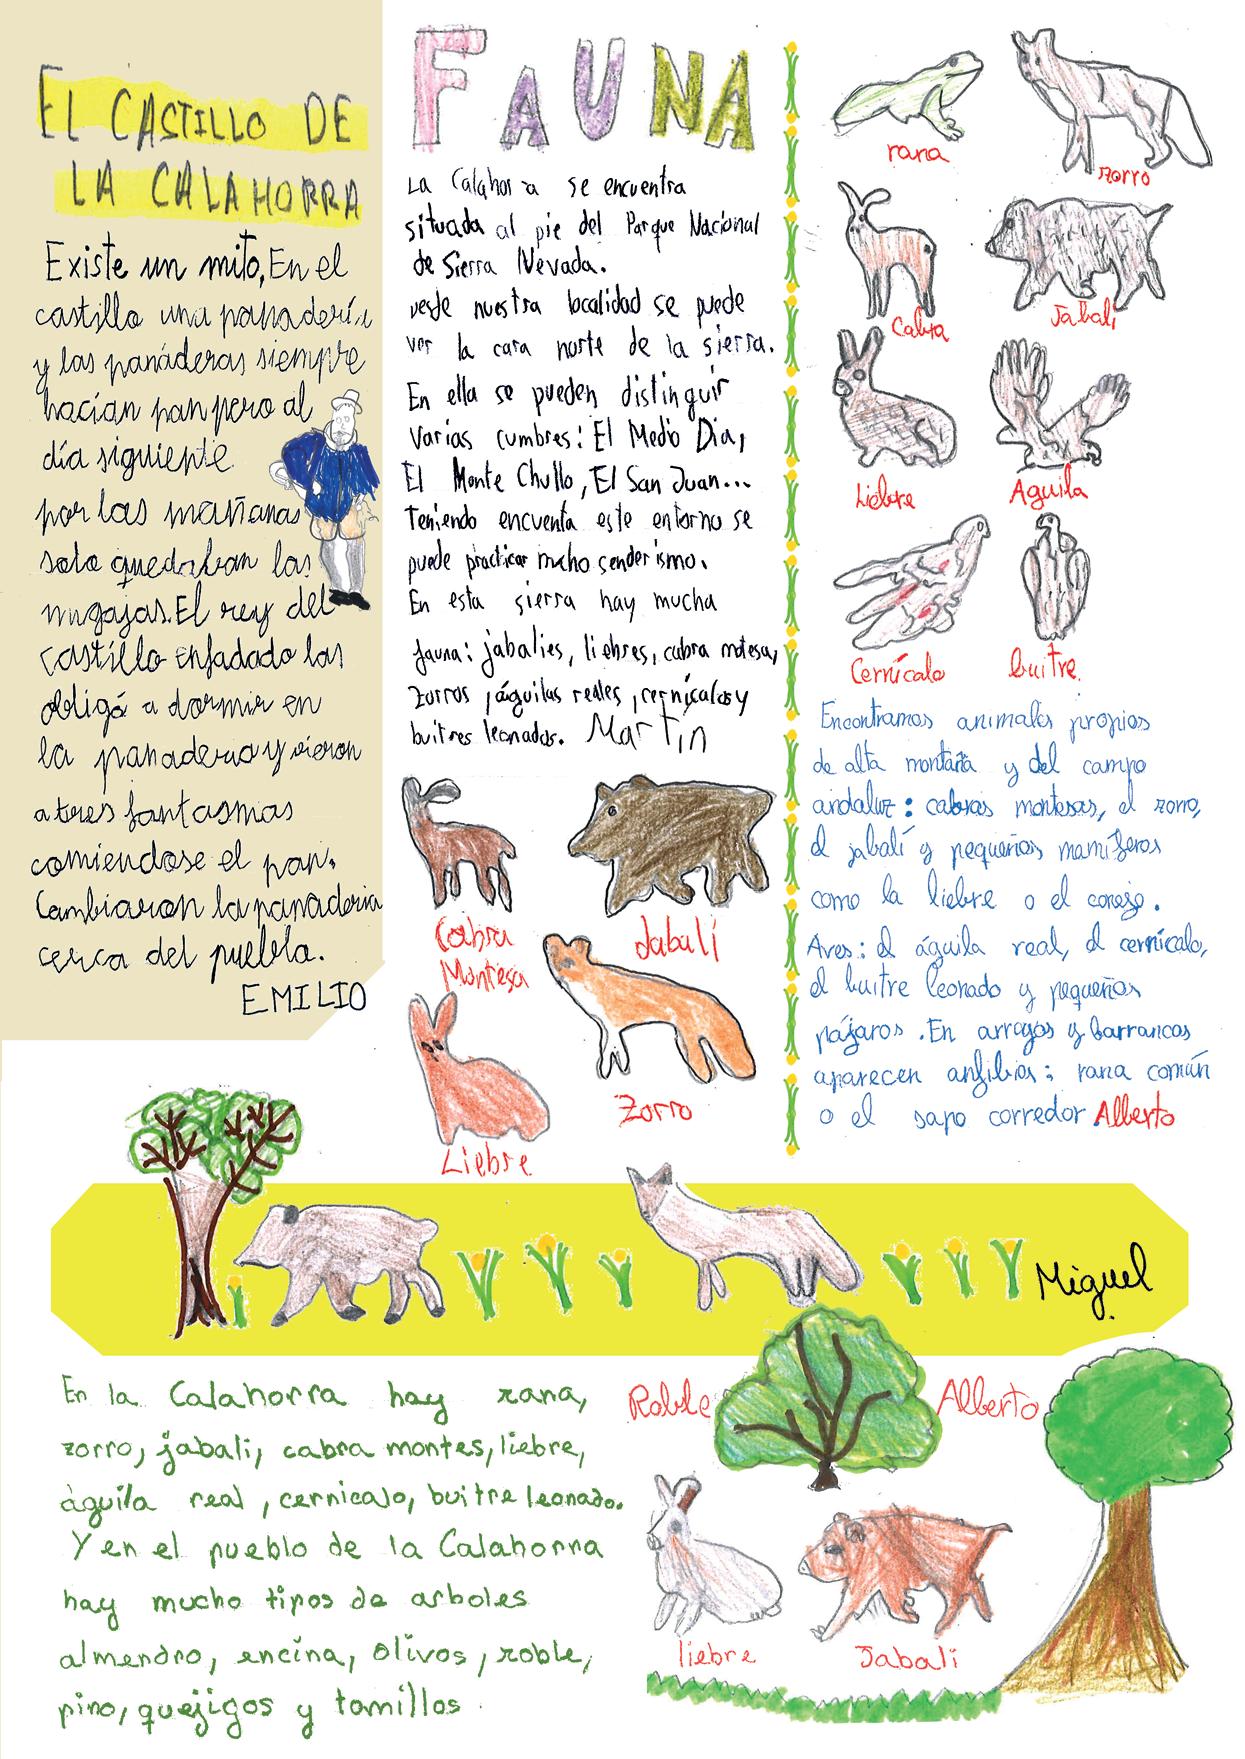 EL CASTILLO DE
LA CALAHORRA
Existe un mito, En el
castillo una panadería
y las panáderas siempre
hacían pan pero al
día siguiente
por las mañanas
solo quedaban las
mugajas. El rey del
castillo enfadado las
obligó a dormir en
la panaderia y vieron
a tres fantasmas
comiendose el pan.
Cambiaron la panaderia
cerca del puebla.
EMILIO
FAUNA
La Calahorra se encuentra
situada al pie del Parque Nacional
de Sierra Nevada.
desde nuestra localidad se puede
ver la cara norte de la sierra.
En ella se pueden distinguir
varias cumbres: El Medio Dia,
El Monte Chullo, El San Juan...
Teniendo encuenta este entorno se
puede practicar mucho senderismo.
En esta sierra hay mucha
fauna: jabalies, liebres, cabra motesa,
zorros, águilas reales, cernícalos y
buitres leonados. Martín
Cabra
Montesa
Jabalí
Liebre
Zorro
rana
zorro
Cabra
Jabalí
Liebre
Aguila
Cernícalo
buitre.
Encontramos animales propios
de alta montaña y del campo
andaluz: cabras montesas, el zorro,
el jabalí y pequeños mamíferos
como la liebre o el conejo.
Aves: el águila real, el cernícalo,
el buitre leonado y pequeños
pájaros. En arroyos y barrancos
aparecen anfibios: rana común
o el sapo corredor Alberto
Miguel
En la Calahorra hay rana,
zorro, jabali, cabra montes, liebre,
águila real, cernicalo, buitre leonado.
Y en el pueblo de la Calahorra
hay mucho tipos de arboles
almendro, encina, olivos, roble,
pino, quejigos y tomillos.
Roble
Alberto
liebre
Jabali